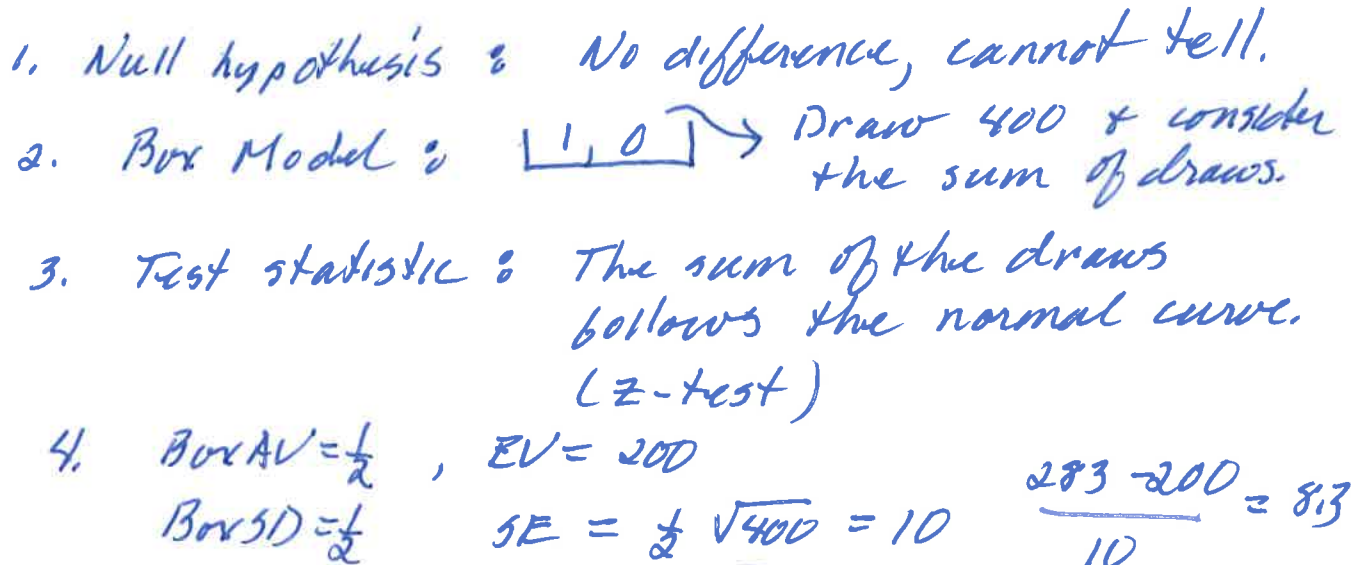 1. Null hypothesis : No difference, cannot tell.
2. Box Model : 1, 0 → Draw 400 & consider
the sum of draws.
3. Test statistic : The sum of the draws
follows the normal curve.
(Z-test)
4. Box AV = 1/2 , EV = 200
Box SD = 1/2 SE = 1/2 √400 = 10 (283 - 200)/10 = 8.3